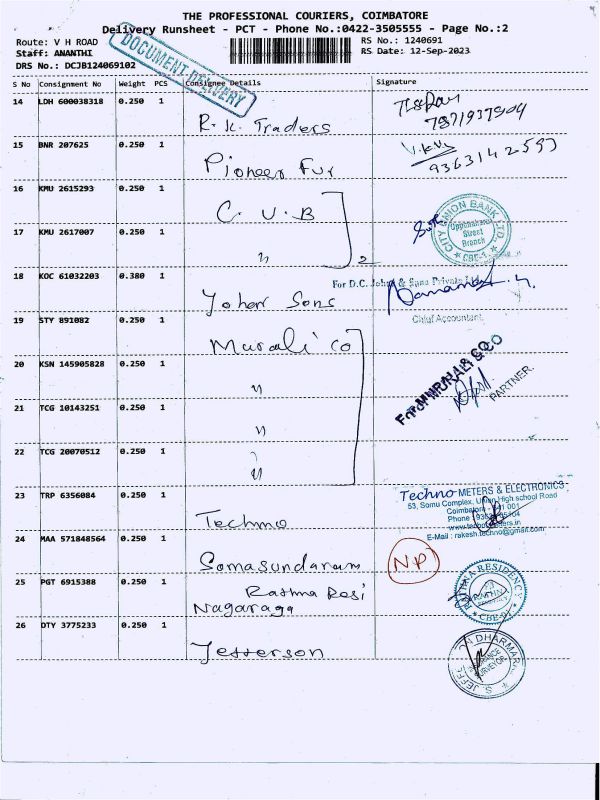 THE PROFESSIONAL COURIERS, COIMBATORE
Delivery Runsheet - PCT - Phone No.:0422-3505555 - Page No.:2
Route: V H ROAD
RS No.: 1240691
Staff: ANANTHI
RS Date: 12-Sep-2023
DRS No.: DCJB124069102
DOCUMENT DELIVERY
S No Consignment No Weight PCS Consignee Details Signature
14 LDH 600038318 0.250 1
R.K. Traders
7871937504
15 BNR 207625 0.250 1
Pioneer Fur
9363142593
16 KMU 2615293 0.250 1
C.U.B
CITY UNION BANK LTD.
Oppanakara
Street
Branch
CBE-1
17 KMU 2617007 0.250 1
" 2
18 KOC 61032203 0.380 1
For D.C. Johar & Sons Private Ltd
Joher Sons
Chief Accountant
19 STY 891082 0.250 1
Murali Co
20 KSN 145905828 0.250 1
"
For MURALI & CO
PARTNER.
21 TCG 10143251 0.250 1
"
22 TCG 20070512 0.250 1
"
23 TRP 6356084 0.250 1
Techno
Techno METERS & ELECTRONICS
53, Somu Complex, Union High school Road
Coimbatore - 641 001
E-Mail : rakesh.techno@gmail.com
24 MAA 571848564 0.250 1
Somasundaram
NP
25 PGT 6915388 0.250 1
Rathna Resi
Nagaraga
RATHNA RESIDENCY
CBE-01
26 DTY 3775233 0.250 1
Jefferson
S. JEFFERSON DHARMARAJ
INSURANCE
SURVEYOR